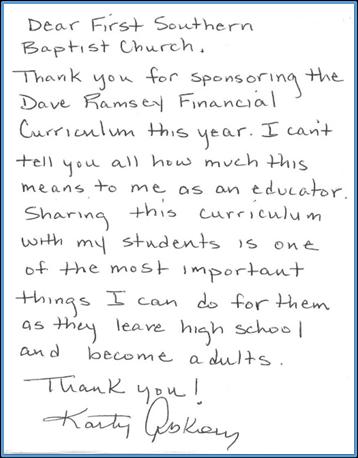 Dear First Southern
Baptist Church.
Thank you for sponsoring the
Dave Ramsey Financial
Curriculum this year. I can't
tell you all how much this
means to me as an educator.
Sharing this curriculum
with my students is one
of the most important
things I can do for them
as they leave high school
and become adults.
Thank you!